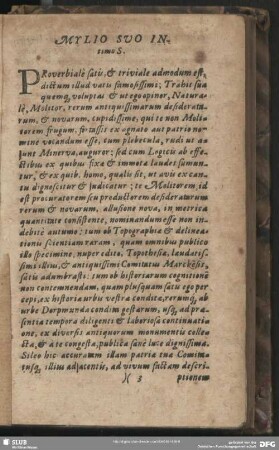 MYLIO SVO IN-
timo S.
PRoverbiale satis, & triviale admodum est,
dictum illud vatis famosissimi; Trahit sua
quemq, voluptas & ut ego opinor, Natura-
lé, Molitor, rerum antiquissimarum desiderata-
rum, & novarum, cupidissime, qui te non Moli-
torem frugum, fortassis ex agnato aut patrio no-
mine vocandum esse, cum plebecula, rudi ut a-
junt Minerva, auguror; sed cum ab esse-
ctibus ex quibus fixa & immota laudes samun-
tur, & ex quib. homo, qualis sit, ut avis ex can-
tu dignoscitur & judicatur; te Molitorem, id
est procuratorem seu productorem desideratarum
rerum & novarum, allusione nova, in metrica
quantitate consistente, nominandum esse non in-
debitè autumo: tum ob Topographiæ & delinea-
tionis scientiam raram, quam omnibus publico
illo specimine, nuper edito, Topothesia, laudatis-
simi illius, & antiquissimi Comitatus Marchēsis,
satis adumbrasti: tum ob historiarum cognitionē
non contemnendam, quam plusquam satis ego per
cepi, ex historia urbis vestra condita, rerumq, ab
urbe Dorpmunda condita gestarum, usq, ad præ-
sentia tempora diligenti & laboriosa continuatio-
ne, ex diversis antiquorum monumentis colle-
cta, & a te congesta, publica sanè luce dignissima.
Sileo hic accuratam illam patriæ tuæ Comita-
tusq, illius adjacentis, ad vivum factam descri-
)( 3 ptionem
SLUB